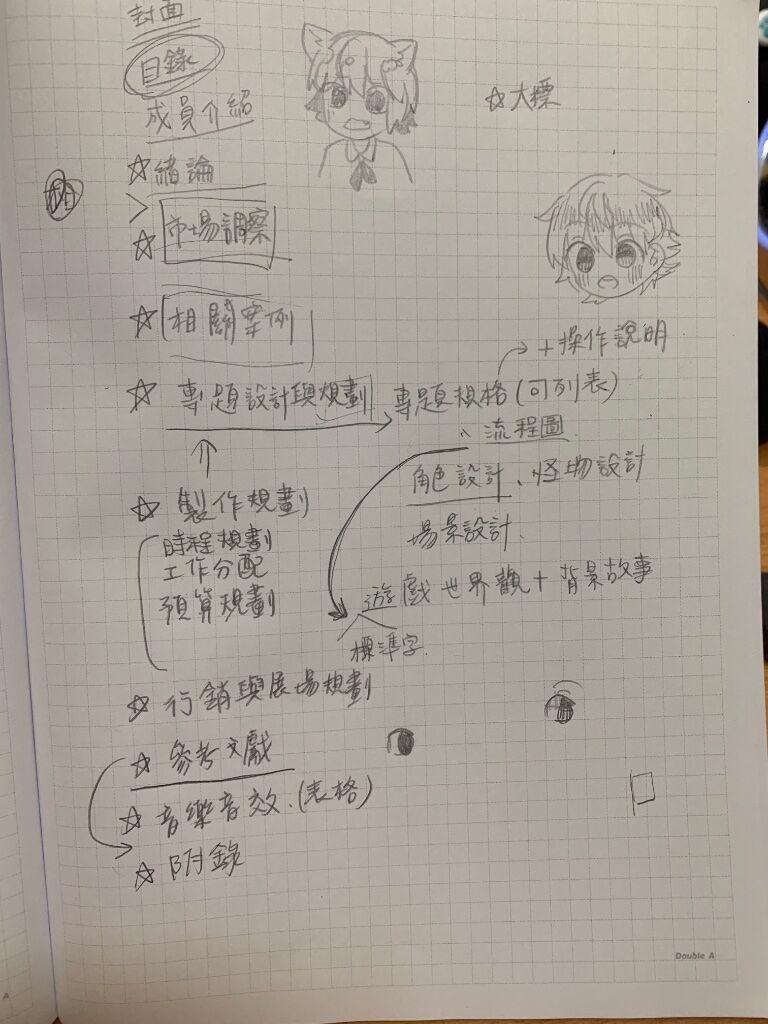 封面
目錄
成員介紹
☆大標
☆緒論
☆市場調察
☆相關案例
→+操作說明
☆專題設計與規劃→專題規格(可列表)
、流程圖
角色設計、怪物設計
☆製作規劃
場景設計.
時程規劃
工作分配
預算規劃
遊戲世界觀+背景故事
標準字.
☆行銷與展場規劃
☆參考文獻
☆音樂音效.(表格)
☆附錄
Double A